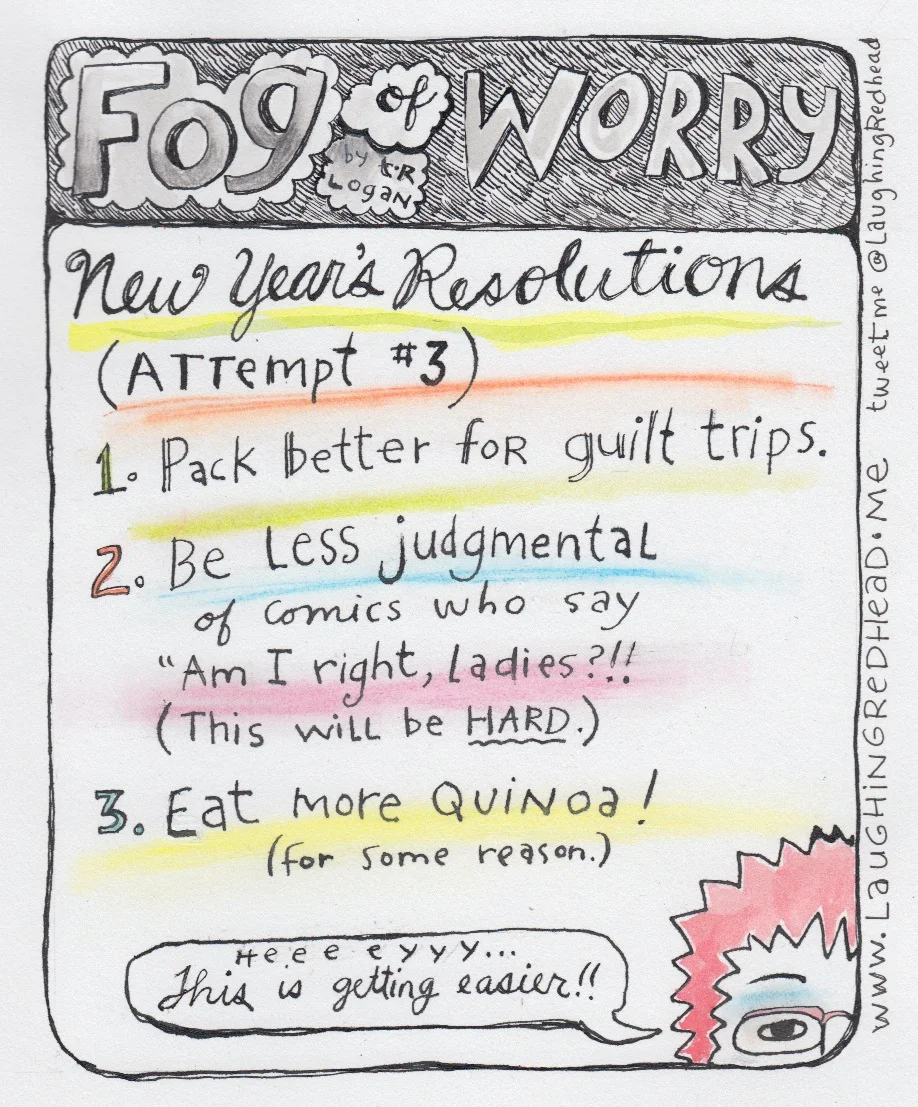 Fog of WORRY
by t.R
Logan
New Year's Resolutions
(ATTempt #3)
1. Pack better foR guilt trips.
2. Be Less judgmentaL
of comics who say
"Am I right, Ladies?!!
(This wiLL be HARD.)
3. Eat more QUiNoa!
(for some reason.)
Heeeeyyy...
This is getting easier!!
www.LaUGHiNGReDHeaD.Me tweet me @LaughingRedhead